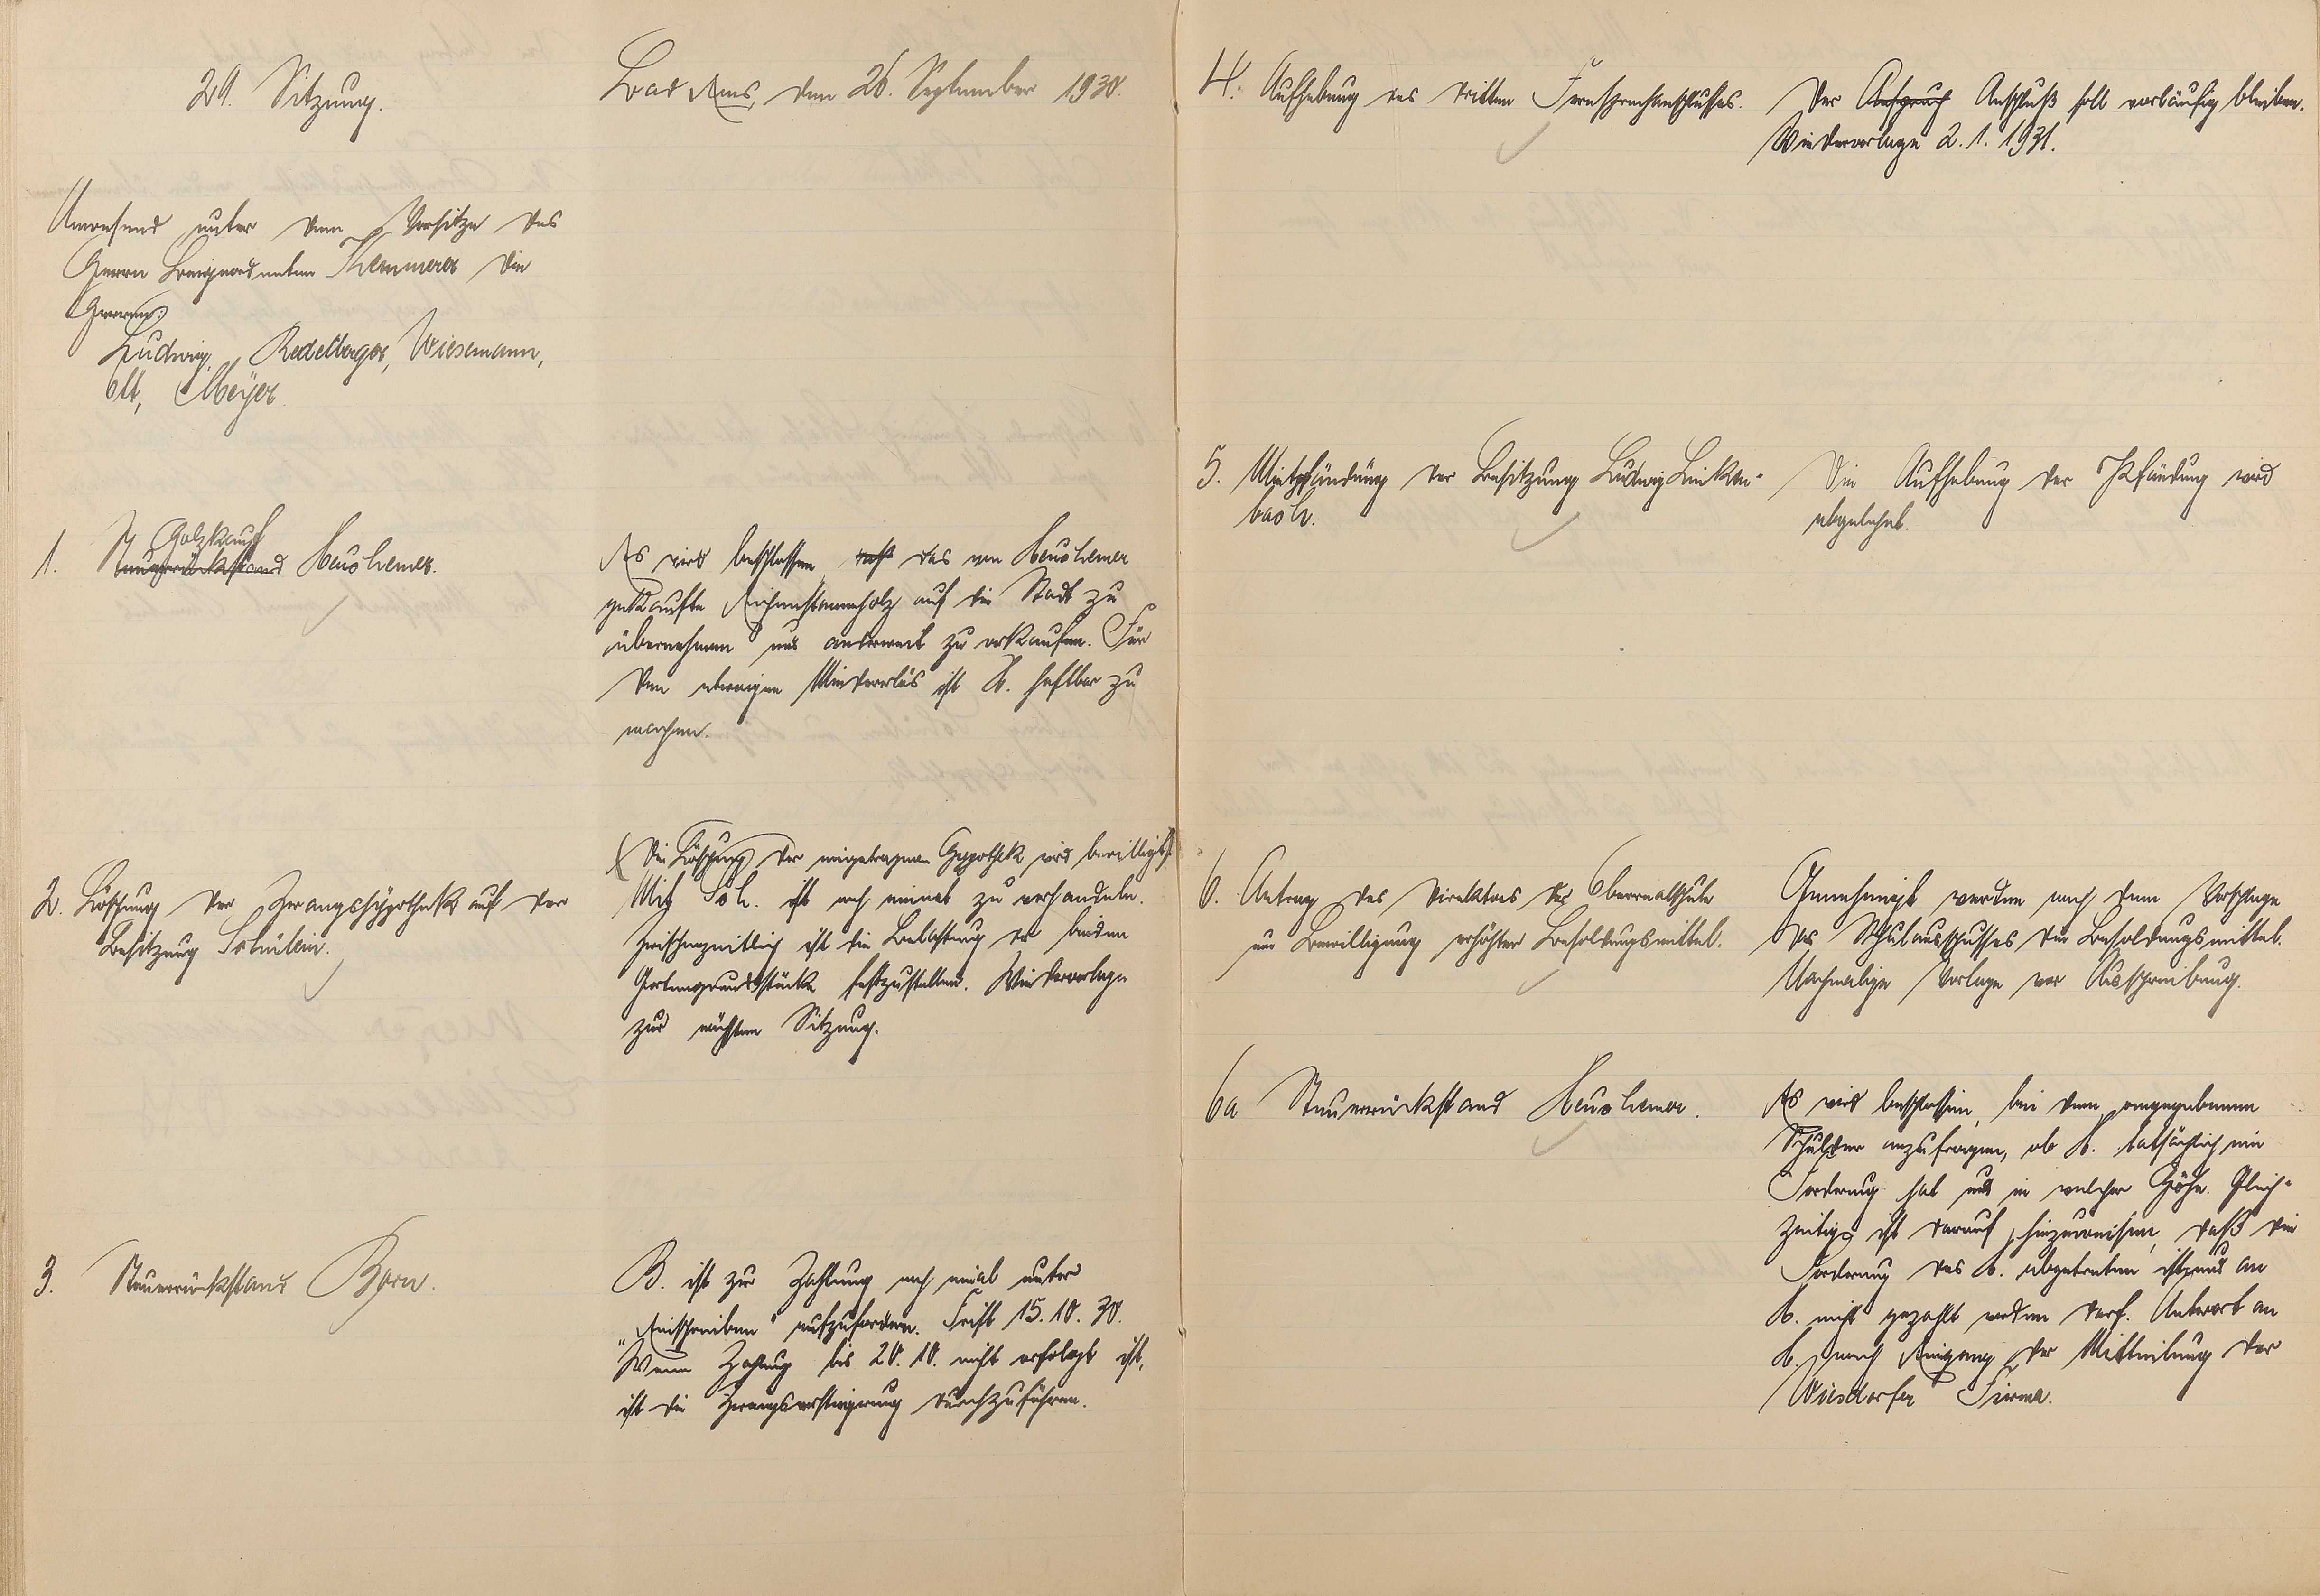 29. Sitzung.
Bad Ems, den 26. September 1930.
Anwesend unter dem Vorsitze des
Herrn Beigeordneten Kemmerer die
Herren:
Ludwig, Redelberger, Wiesemann,
Ott, Meyer.
1. Holzkauf
Steuerrückstand Heuchemer.
Es wird beschlossen daß das von Heuchemer
gekaufte Eichenstammholz auf die Stadt zu
übernehmen und anderweit zu verkaufen. Für
den etwaigen Mindererlös ist H. haftbar zu
machen.
2. Löschung der Zwangshypothek auf der
Besitzung Schülein.
(Die Löschung der eingetragenen Hypothek wird bewilligt).
Mit Sch. ist noch einmal zu verhandeln.
Zwischenzeitlich ist die Belastung der beiden
Gartengrundstücke festzustellen. Wiedervorlage
zur nächsten Sitzung.
3. Steuerrückstand Born.
B. ist zur Zahlung noch einmal unter
"Einschreiben" aufzufordern. Frist 15.10.30.
Wenn Zahlung bis 20.10. nicht erfolgt ist,
ist die Zwangsversteigerung durchzuführen.
4. Aufhebung des dritten Fernsprechanschlusses.
Der Anspruch Anschluß soll vorläufig bleiben.
Wiedervorlage 2.1.1931.
5. Mietpfändung der Besitzung Ludwig Linken-
bach.
Die Aufhebung der Pfändung wird
abgelehnt.
6. Antrag des Direktors der Oberrealschule
um Bewilligung erhöhter Besoldungsmittel.
Genehmigt werden nach dem Vorschlage
des Schulausschusses die Besoldungsmittel.
Nochmalige Vorlage vor Ausschreibung.
6a Steuerrückstand Heuchemer.
Es wird beschlossen, bei dem angegebenen
Schuldner anzufragen, ob H. tatsächlich eine
Forderung hat und in welcher Höhe. Gleich-
zeitig ist darauf hinzuweisen, daß die
Forderung des H. abgetreten ist und an
H. nicht gezahlt werden darf. Antwort an
H. nach Eingang der Mitteilung der
Wiesdorfer Firma.